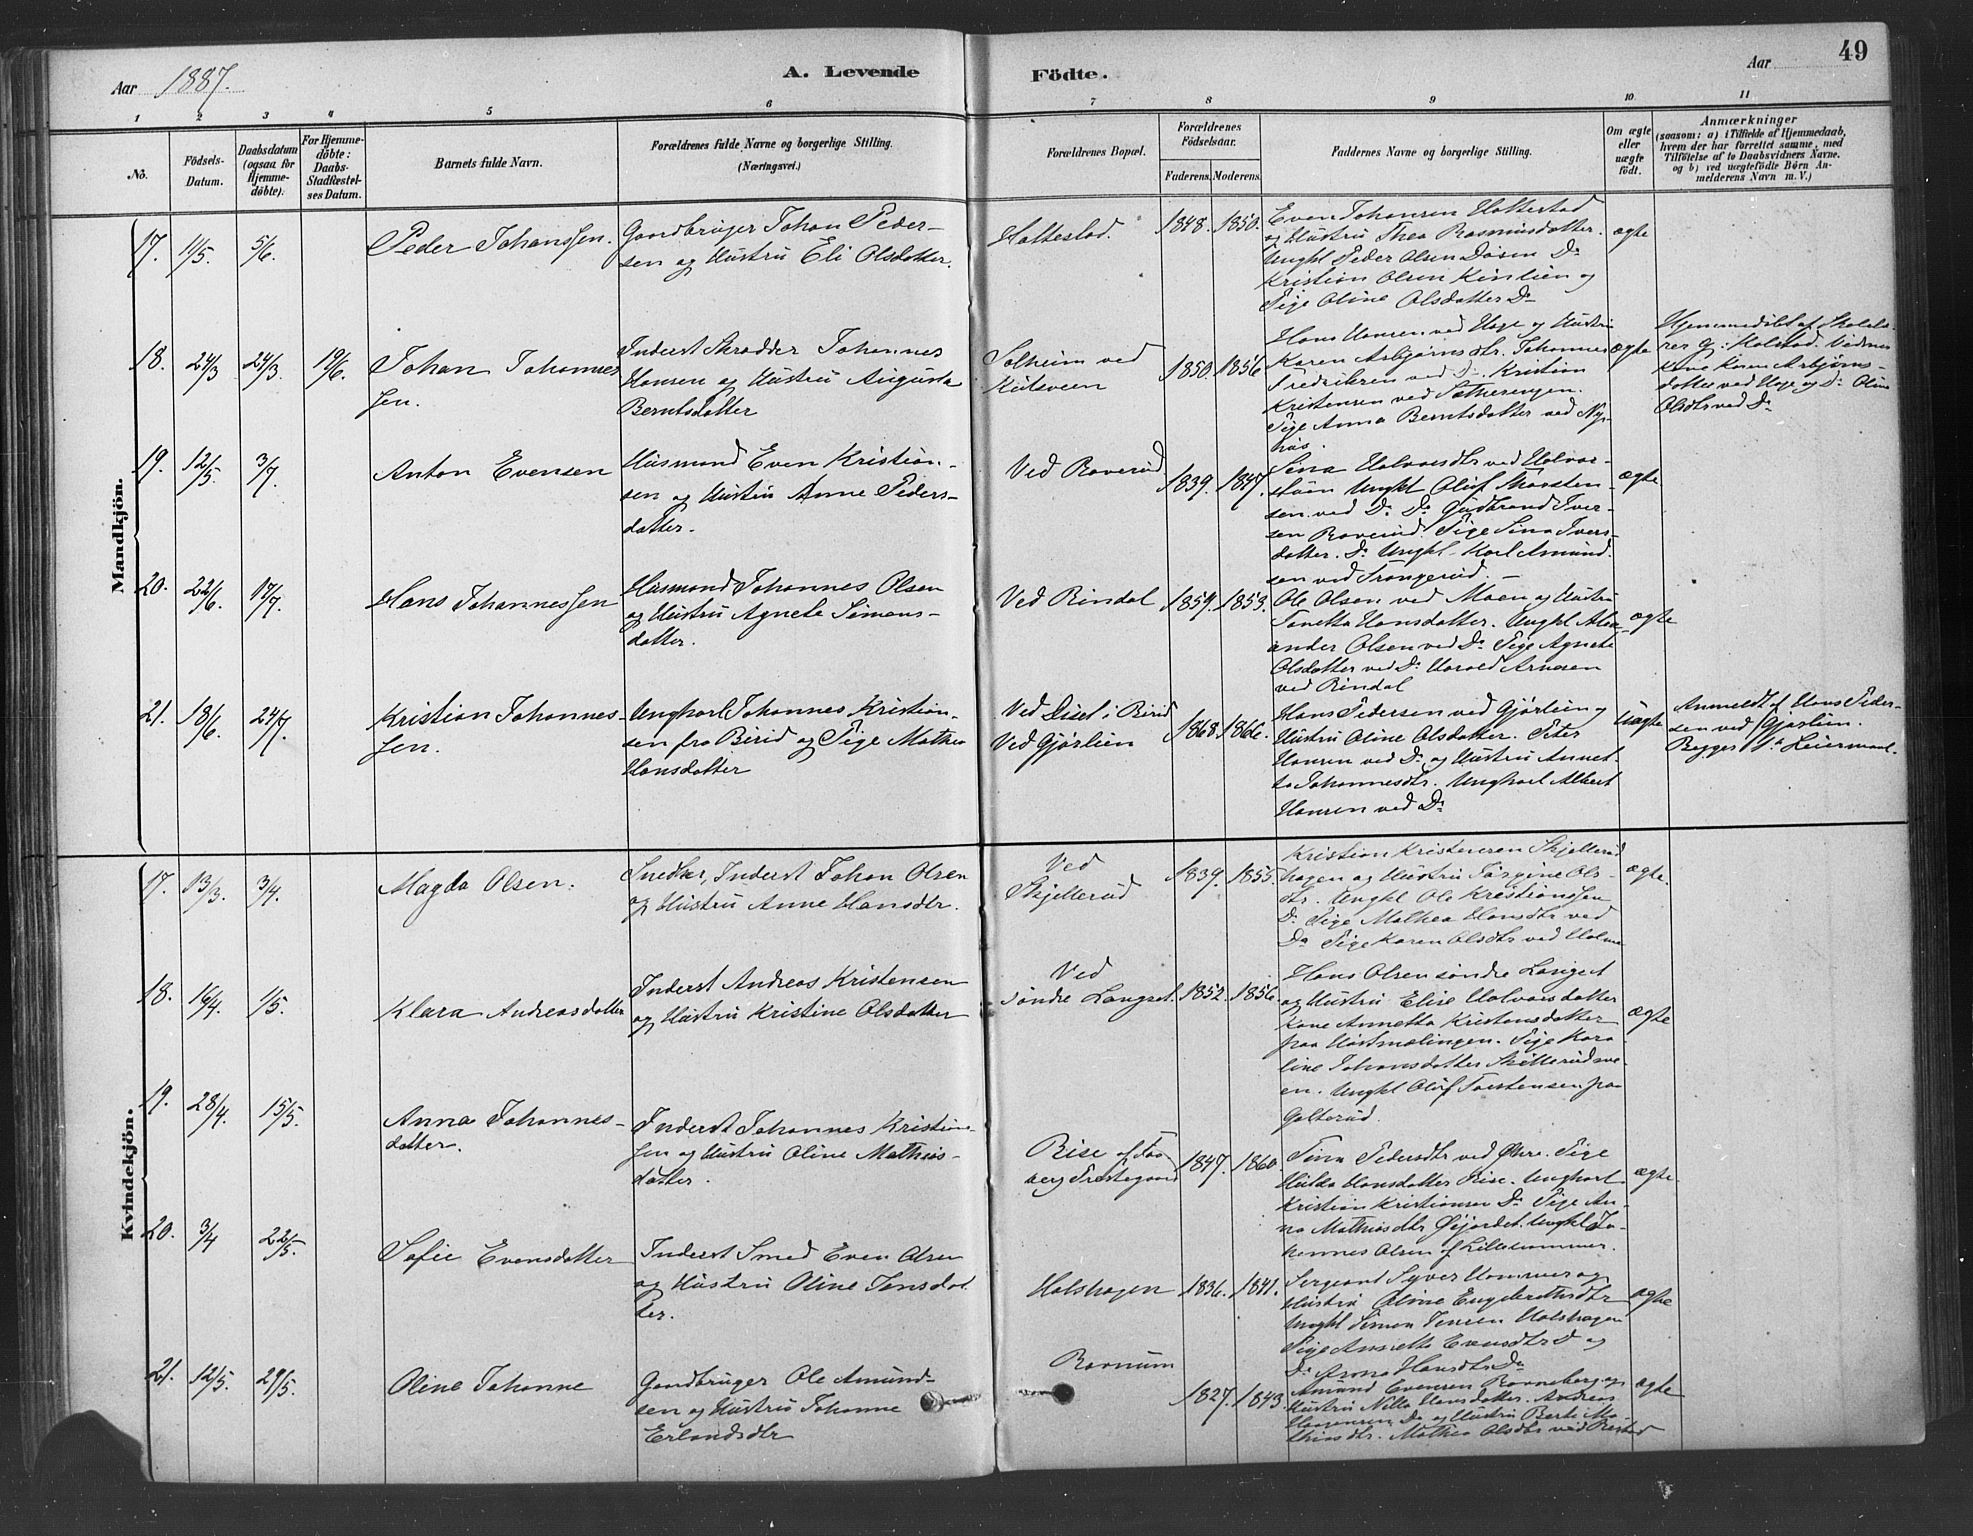 Aar 1887.
A. Levende
Födte.
Aar
49
1 2 3 4 5 6 7 8 9 10 11
No.
Födsels-
Datum.
Daabsdatum
(ogsaa for
Hjemme-
döbte).
For Hjemme-
döbte:
Daabs-
Stadfæstel-
ses Datum.
Barnets fulde Navn.
Forældrenes fulde Navne og borgerlige Stilling.
(Næringsvei.)
Forældrenes Bopæl.
Forældrenes
Födselsaar.
Faderens. Moderens.
Faddernes Navne og borgerlige Stilling.
Om ægte
eller
uægte
født.
Anmærkninger
(saasom: a) i Tilfælde af Hjemmedaab,
hvem der har forrettet samme, med
Tilføielse af to Daabsvidners Navne.
og b) ved uægtefødte Börn An-
melderens Navn m. V.)
Mandkjön.
17. 11/5. 5/6.
Peder Johanssen.
Gaardbruger Johan Peder-
sen og Hustru Eli Olsdatter.
Hattestad.
1848. 1850.
Even Johansen Hattestad
og Hustru Thea Rasmusdatter.
Ungkl Peder Olsen Døsen Do
Kristian Olsen Kinlien og
Pige Oline Olsdatter Do
ægte
18. 24/3 24/3. 19/6.
Johan Johannes
sen.
Inderst Skrædder Johannes
Hansen og Hustru Augusta
Berntsdatter
Solheim ved
1850. 1856
Hans Hansen ved Hage og Hustru
Karen Asbjørnsdtr. Johannes
Fredriksen ved Do. Kristian
Kristensen ved Sætherengen.
Pige Anna Berntsdatter ved Ny-
hus.
ægte
Hjemmedøbt af Skolelæ-
rer G: Kalstad. Vidnes
Kone Karen Asbjørns-
datter ved Hage og Do Oline
Olsdtr ved Do
19. 12/5. 3/7
Anton Evensen
Husmand Even Kristian-
sen og Hustru Anne Peders-
datter.
Ved Roverud.
1839. 1847.
Sina Halvorsdtr ved Halvor-
stuen Ungkl Oluf Morten-
sen ved Do. Do Gudbrand Iver-
sen Roverud. Pige Sina Ivers-
datter. Do Ungkl. Karl Amund-
sen ved Trangerud.
ægte
20. 22/6. 17/7.
Hans Johannessen
Husmand Johannes Olsen
og Hustru Agnete Simens-
datter.
Ved Rindal
1859. 1853.
Ole Olsen ved Moen og Hustru
Janetta Hansdatter. Ungkl Alex-
ander Olsen ved Do. Pige Agnete
Olsdatter ved Do. Harald Arnesen
ved Rindal
ægte
21. 18/6. 24/7.
Kristian Johannes-
sen.
Ungkarl Johannes Kristian-
sen fra Birid og Pige Mathea
Hansdatter
Ved Disel i Birid
Ved Gjørlien
1868. 1866.
Hans Pedersen ved Gjørlien og
Hustru Oline Olsdatter. Peter
Hansen ved Do og Hustru Annet-
ta Johannesdtr. Ungkarl Albert
Hansen ved Do
Uægte
Anmeldt af Hans Peder-
sen ved Gjørlien.
Begges 1ste Leiermaal.
Kvindekjön.
17. 13/3. 3/4.
Magda Olsen.
Snedker, Inderst Johan Olsen
og Hustru Anne Hansdtr.
Ved
Skjellerud
1839. 1855.
Kristian Kristensen Skjellerud
hagen og Hustru Jørgine Ols-
dtr. Ungkl Ole Kristianssen
Do. Pige Mathea Hansdtr ved
Do Pige Karen Olsdtr ved Holme
ægte.
18. 16/4. 1/5.
Klara Andreasdatter
Inderst Andreas Kristensen
og Hustru Kristine Olsdatter
Ved
søndre Langset.
1852. 1856.
Hans Olsen søndre Langset
og Hustru Elise Halvorsdatter
Kone Annetta Kristansdatter
paa Hustmælingen. Pige Karo
line Johansdatter Skjellerudsve-
en. Ungkl Oluf Torstensen paa
Galterud.
ægte
19. 28/4 15/5.
Anna Johannes-
datter.
Inderst Johannes Kristian-
sen og Hustru Oline Mathias-
datter.
Rise af Faa
berg Prestegaard
1847. 1860.
Sina Pedersdtr ved Øvre. Pige
Hulda Hansdatter Rise. Ungkarl
Kristian Kristiansen Do. Pige An-
na Mathiasdtr Øijordet. Ungkl Jo-
hannes Olsen af Lillehammer.
ægte.
20. 3/4 22/5.
Sofie Evensdatter
Inderst Smed Even Olsen
og Hustru Oline Jensdat
ter.
Halshagen
1836. 1841.
Sergeant Syver Hammer og
Hustru Oline Engebretsdtr
Ungkl Simen Jensen Halshagen
Pige Annette Evensdtr Do og
Do Anna Hansdtr Do
ægte
21. 12/5. 29/5.
Oline Johanne
Gaardbruger Ole Amund-
sen og Hustru Johanne
Erlandsdtr
Rovnum
1827. 1843.
Amund Evensen Rønneberg og
Hustru Nilla Hansdatter. Andreas
Haagensen Do og Hustru Berte Ma-
thiasdtr. Mathea Olsdtr ved Bestad
ægte